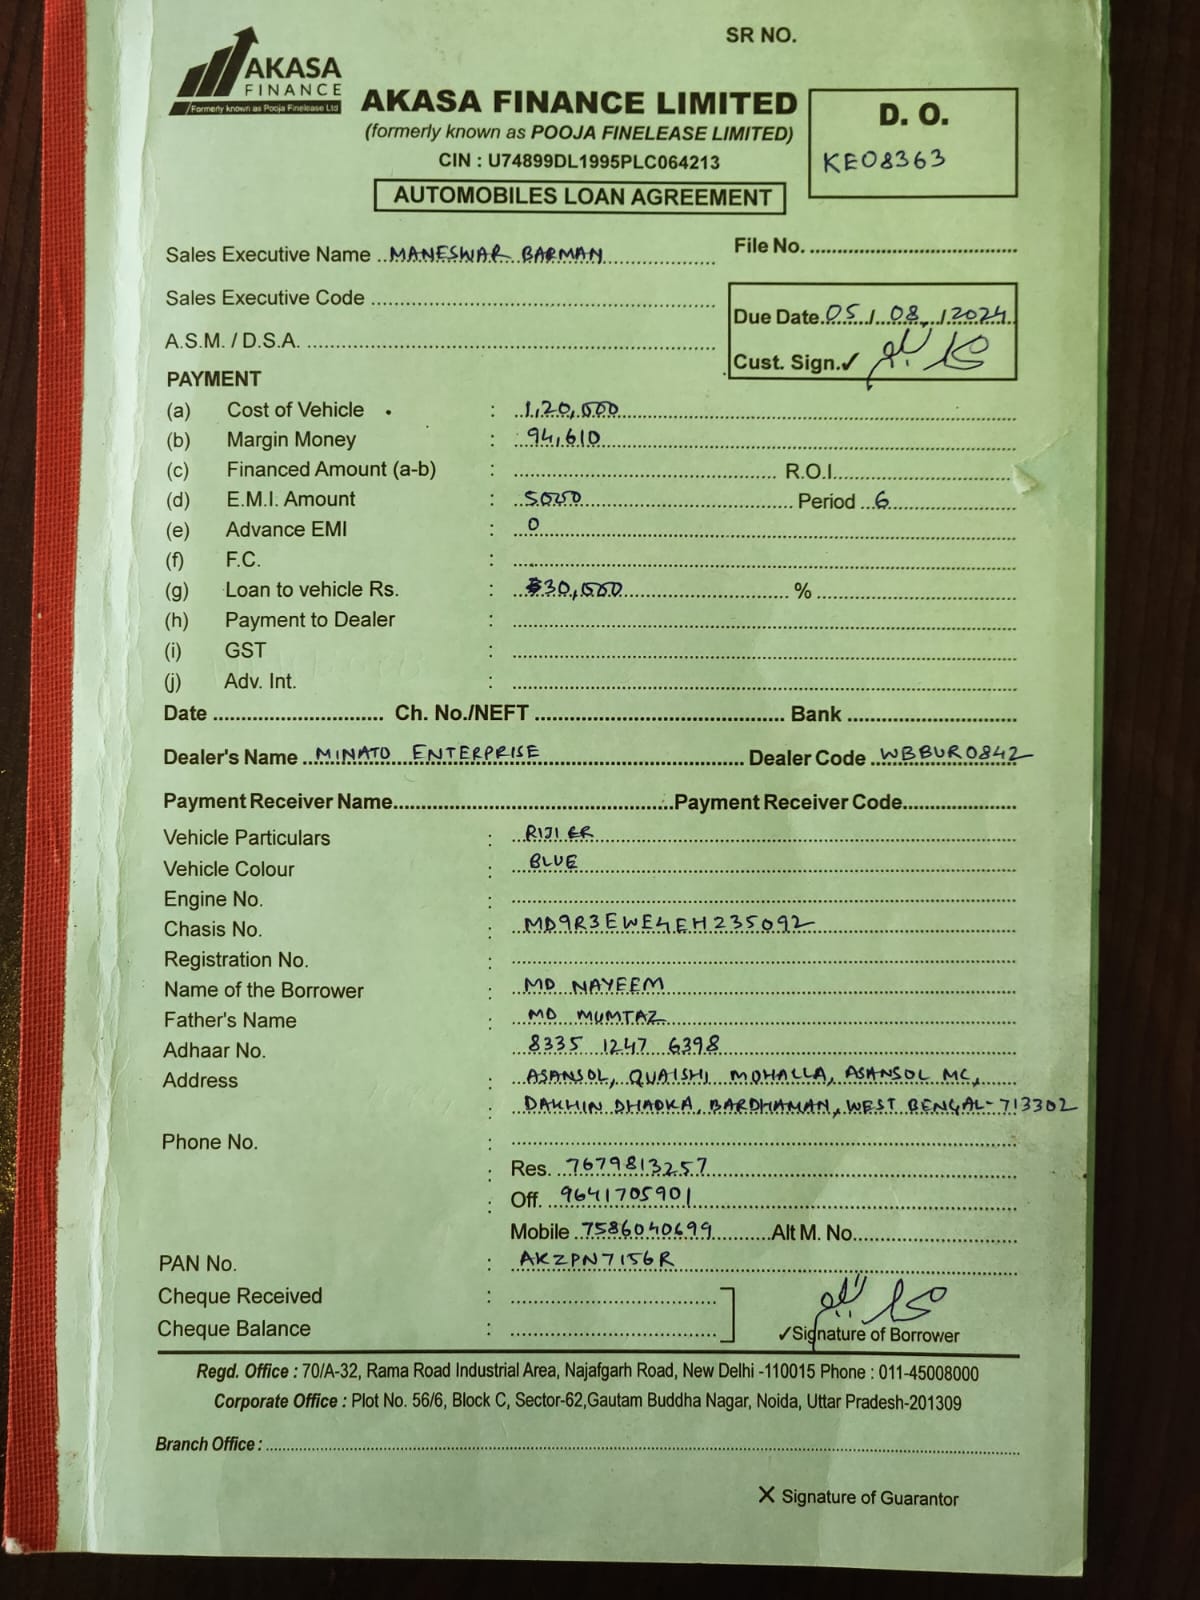 SR NO.
AKASA
FINANCE
Formerly known as Pooja Finelease Ltd
AKASA FINANCE LIMITED
(formerly known as POOJA FINELEASE LIMITED)
CIN : U74899DL1995PLC064213
AUTOMOBILES LOAN AGREEMENT
D. O.
KE08363
Sales Executive Name MANESWAR BARMAN
File No.
Sales Executive Code
Due Date 05/08/2024
A.S.M. / D.S.A.
Cust. Sign.✓ محمد نعیم
PAYMENT
(a) Cost of Vehicle : 1,20,000
(b) Margin Money : 94,610
(c) Financed Amount (a-b) : R.O.I.
(d) E.M.I. Amount : 5000 Period 6
(e) Advance EMI : 0
(f) F.C. :
(g) Loan to vehicle Rs. : 30,000 %
(h) Payment to Dealer :
(i) GST :
(j) Adv. Int. :
Date Ch. No./NEFT Bank
Dealer's Name MINATO ENTERPRISE Dealer Code WBBUR0842
Payment Receiver Name Payment Receiver Code
Vehicle Particulars : RIJI ER
Vehicle Colour : BLUE
Engine No. :
Chasis No. : MD9R3EWE4EH235092
Registration No. :
Name of the Borrower : MD NAYEEM
Father's Name : MD MUMTAZ
Adhaar No. : 8335 1247 6398
Address : ASANSOL, QUAISHI MOHALLA, ASANSOL MC,
: DAKHIN DHADKA, BARDHAMAN, WEST BENGAL-713302
Phone No. :
: Res. 7679813257
: Off. 9641705901
Mobile 7586040699 Alt M. No.
PAN No. : AKZPN7156R
Cheque Received :
Cheque Balance :
محمد نعیم
✓Signature of Borrower
Regd. Office : 70/A-32, Rama Road Industrial Area, Najafgarh Road, New Delhi -110015 Phone : 011-45008000
Corporate Office : Plot No. 56/6, Block C, Sector-62,Gautam Buddha Nagar, Noida, Uttar Pradesh-201309
Branch Office :
X Signature of Guarantor